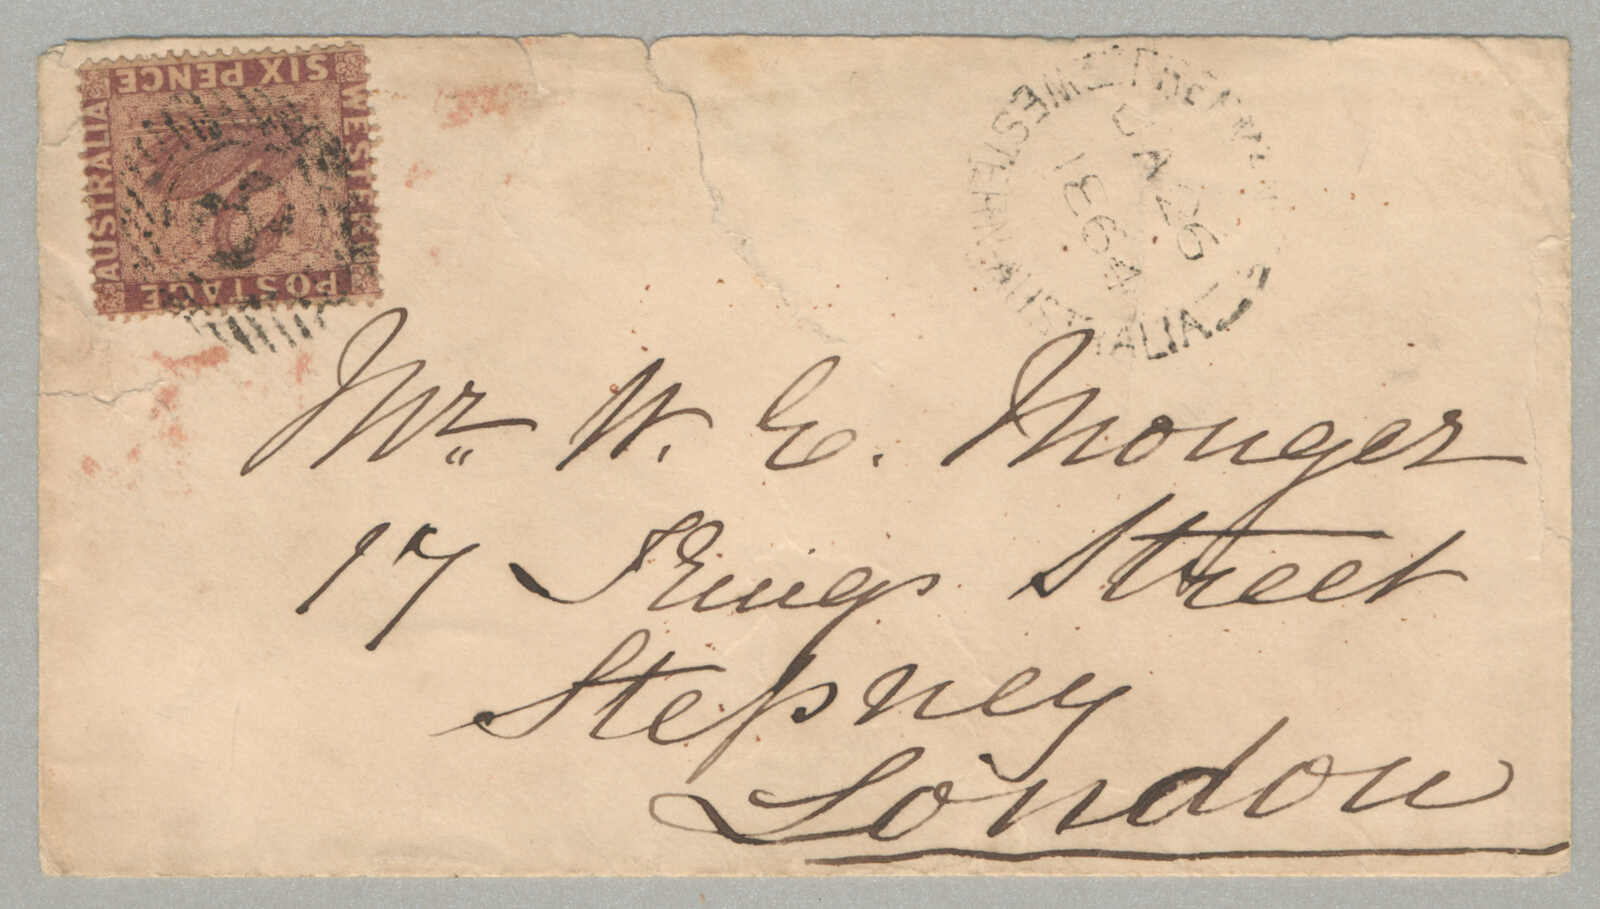 SIX PENCE
WESTERN
AUSTRALIA
POSTAGE
8
WESTERN AUSTRALIA
JA 26
1864
Mr. W. E. Monger
17 Kings Street
Stepney
London